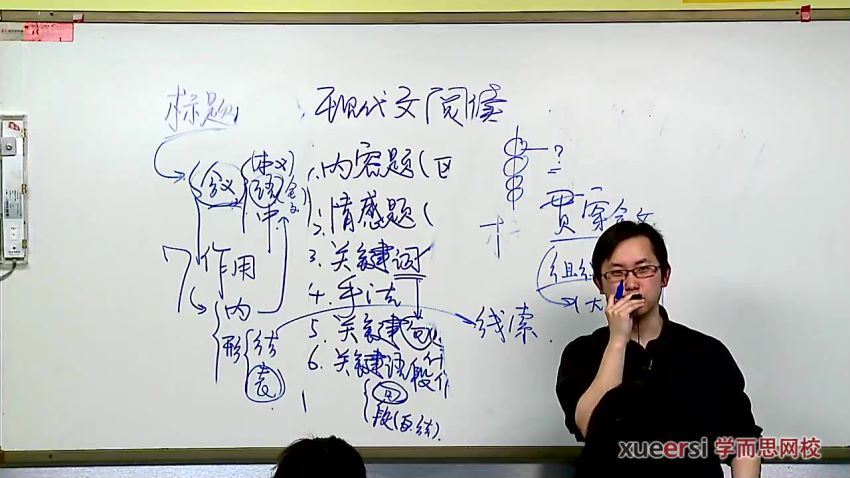 标题
现代文阅读
含义
(本义)
语
中
1.内容题(
2.情感题(
3.关键词
4.手法
5.关键句
6.关键语段
段(
7作用
内
形
结
表
?
贯穿全文
组织
线索
xueersi 学而思网校